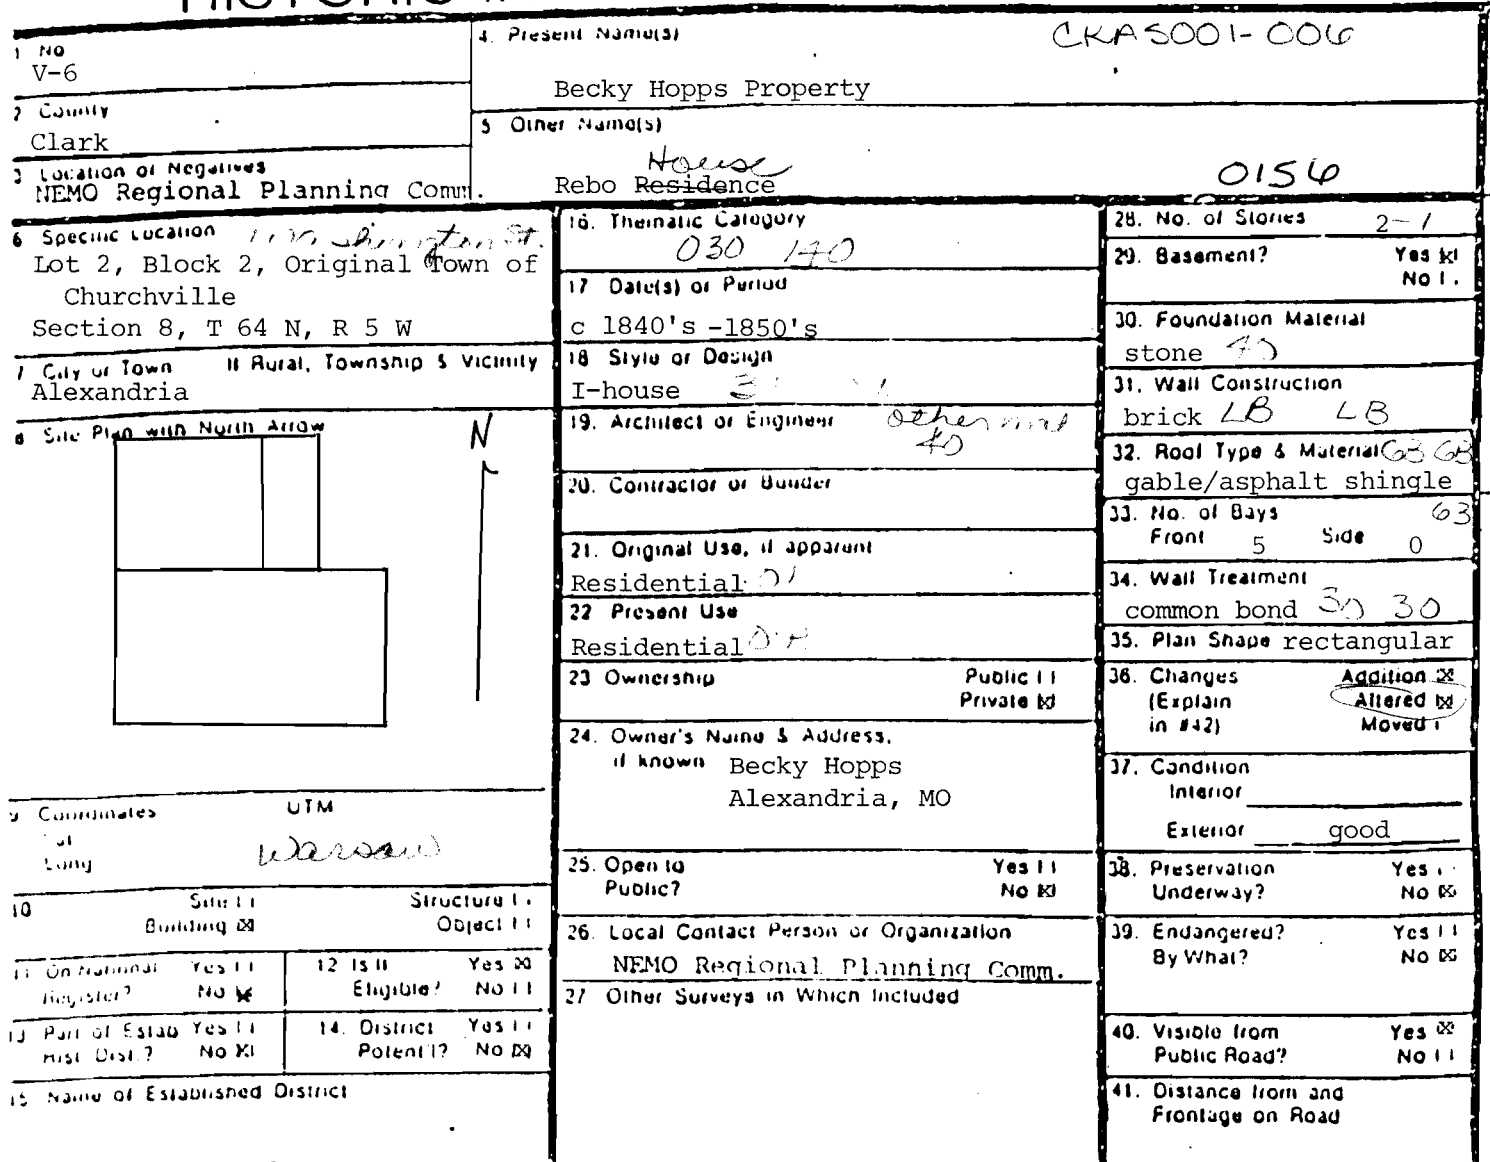 1 No
V-6
4. Present Name(s)
CKAS001-006
Becky Hopps Property
2 County
Clark
5 Other Name(s)
House
Rebo Residence
0156
3 Location of Negatives
NEMO Regional Planning Comm.
6 Specific Location
Washington St.
Lot 2, Block 2, Original Town of
Churchville
Section 8, T 64 N, R 5 W
7 City or Town If Rural, Township & Vicinity
Alexandria
8 Site Plan with North Arrow
N
9 Coordinates UTM
Lat
Long
Warsaw
10 Site Structure
Building ☒ Object
11 On National Register? Yes No ☒
12 Is It Eligible? Yes ☒ No
13 Part of Estab Hist. Dist.? Yes No ☒
14. District Potent'l? Yes No ☒
15 Name of Established District
16. Thematic Category
030 140
17 Date(s) or Period
c 1840's -1850's
18 Style or Design
I-house
19. Architect or Engineer
other
40
20. Contractor or Builder
21. Original Use, if apparent
Residential 01
22 Present Use
Residential
23 Ownership Public
Private ☒
24. Owner's Name & Address,
if known Becky Hopps
Alexandria, MO
25. Open to Yes
Public? No ☒
26. Local Contact Person or Organization
NEMO Regional Planning Comm.
27 Other Surveys in Which Included
28. No. of Stories 2-1
29. Basement? Yes ☒
No
30. Foundation Material
stone 40
31. Wall Construction
brick LB LB
32. Roof Type & Material GB GB
gable/asphalt shingle
33. No. of Bays 63
Front 5 Side 0
34. Wall Treatment
common bond 30 30
35. Plan Shape rectangular
36. Changes Addition ☒
(Explain Altered ☒
in #42) Moved
37. Condition
Interior
Exterior good
38. Preservation Yes
Underway? No ☒
39. Endangered? Yes
By What? No ☒
40. Visible from Yes ☒
Public Road? No
41. Distance from and
Frontage on Road